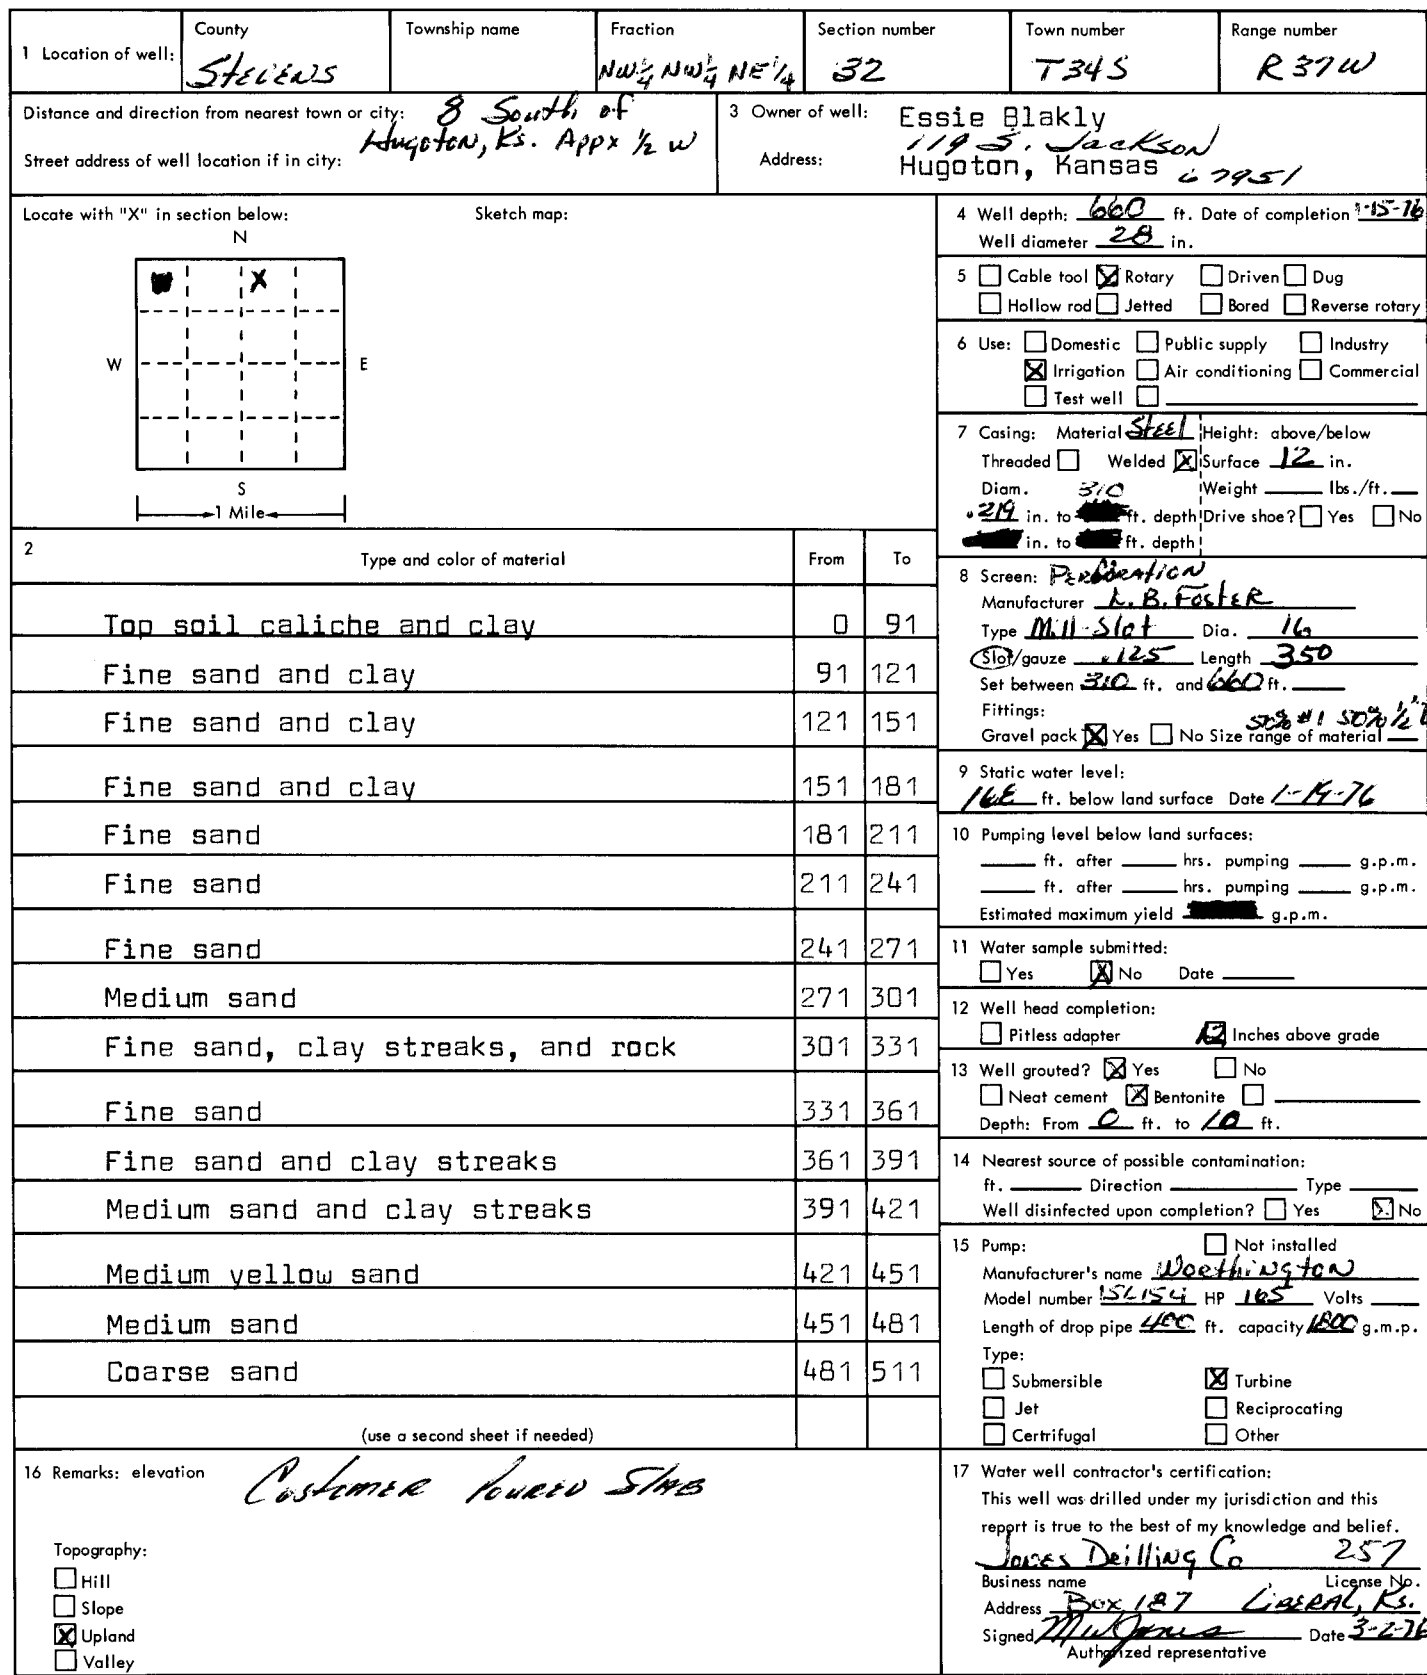 1 Location of well: County Township name Fraction Section number Town number Range number
Stevens NW¼ NW¼ NE¼ 32 T34S R37W
Distance and direction from nearest town or city: 8 South of
Hugoton, Ks. Appx ½ W
Street address of well location if in city:
3 Owner of well: Essie Blakly
Address: 119 S. Jackson
Hugoton, Kansas 67951
Locate with "X" in section below: Sketch map:
N
X
W E
S
1 Mile
2 Type and color of material From To
Top soil caliche and clay 0 91
Fine sand and clay 91 121
Fine sand and clay 121 151
Fine sand and clay 151 181
Fine sand 181 211
Fine sand 211 241
Fine sand 241 271
Medium sand 271 301
Fine sand, clay streaks, and rock 301 331
Fine sand 331 361
Fine sand and clay streaks 361 391
Medium sand and clay streaks 391 421
Medium yellow sand 421 451
Medium sand 451 481
Coarse sand 481 511
(use a second sheet if needed)
4 Well depth: 660 ft. Date of completion 1-15-76
Well diameter 28 in.
5 Cable tool X Rotary Driven Dug
Hollow rod Jetted Bored Reverse rotary
6 Use: Domestic Public supply Industry
X Irrigation Air conditioning Commercial
Test well
7 Casing: Material Steel Height: above/below
Threaded Welded X Surface 12 in.
Diam. 310 Weight lbs./ft.
.219 in. to ft. depth Drive shoe? Yes No
in. to ft. depth
8 Screen: Perforation
Manufacturer L.B. Foster
Type Mill-Slot Dia. 16
Slot/gauze .125 Length 350
Set between 310 ft. and 660 ft.
Fittings: 50% #1 50% ½
Gravel pack X Yes No Size range of material
9 Static water level:
ft. below land surface Date
10 Pumping level below land surfaces:
ft. after hrs. pumping g.p.m.
ft. after hrs. pumping g.p.m.
Estimated maximum yield g.p.m.
11 Water sample submitted:
Yes X No Date
12 Well head completion:
Pitless adapter 12 Inches above grade
13 Well grouted? X Yes No
Neat cement X Bentonite
Depth: From 0 ft. to 10 ft.
14 Nearest source of possible contamination:
ft. Direction Type
Well disinfected upon completion? Yes X No
15 Pump: Not installed
Manufacturer's name Worthington
Model number HP 165 Volts
Length of drop pipe 400 ft. capacity 1800 g.m.p.
Type:
Submersible X Turbine
Jet Reciprocating
Certrifugal Other
16 Remarks: elevation Costomer Poured Slab
Topography:
Hill
Slope
X Upland
Valley
17 Water well contractor's certification:
This well was drilled under my jurisdiction and this
report is true to the best of my knowledge and belief.
Jones Drilling Co 257
Business name License No.
Address Box 187 Liberal, Ks.
Signed MW Jones Date 3-2-76
Authorized representative